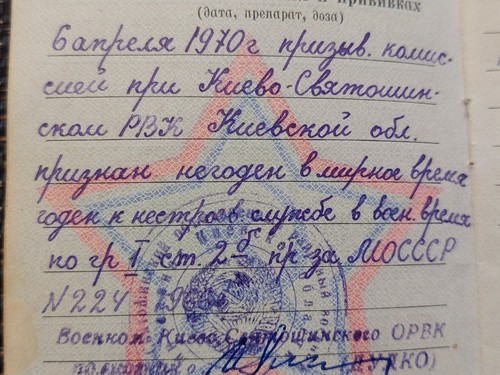 прививках
(дата, препарат, доза)
6 апреля 1970 г призыв. комис-
сией при Киево-Святошин-
ском РВК Киевской обл.
признан негоден в мирное время
годен к нестроев. службе в воен. время
по гр I ст. 2-б пр-за МОСССР
N 224
Военком Киево-Святошинского ОРВК